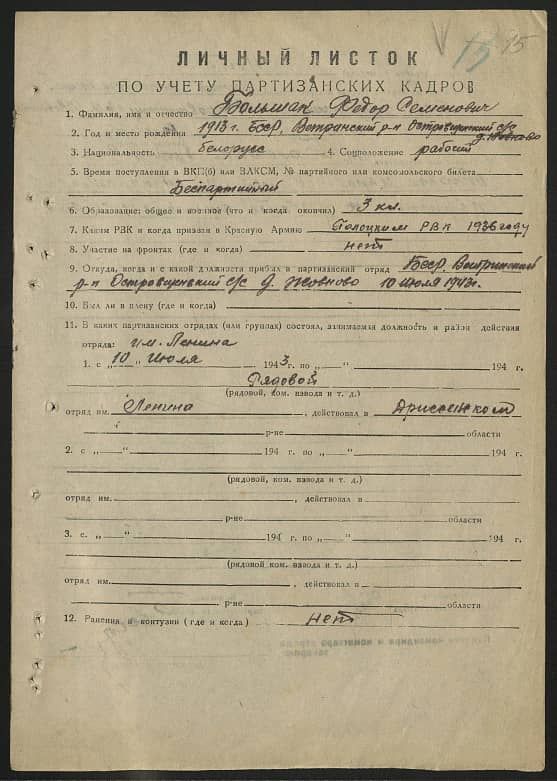 15 15
ЛИЧНЫЙ ЛИСТОК
ПО УЧЕТУ ПАРТИЗАНСКИХ КАДРОВ
1. Фамилия, имя и отчество Большак Федор Семенович
2. Год и место рождения 1913 г. БССР, Ветринский р-н Островщинский с/с
д. Жовново
3. Национальность белорусс 4. Соцположение рабочий
5. Время поступления в ВКП(б) или ВЛКСМ, № партийного или комсомольского билета
Беспартийный
6. Образование: общее и военное (что и когда окончил) 3 кл.
7. Каким РВК и когда призван в Красную Армию Полоцким РВК 1936 году
8. Участие на фронтах (где и когда) нет
9. Откуда, когда и с какой должности прибыл в партизанский отряд БССР, Ветринский
р-н Островщинский с/с д. Жовново 10 июля 1943 г.
10. Был ли в плену (где и когда)
11. В каких партизанских отрядах (или группах) состоял, занимаемая должность и район действия
отряда: им. Ленина
1. с „10“ Июля 1943 г. по „ “ 194 г.
Рядовой
(рядовой, ком. взвода и т. д.)
отряд им. Ленина, действовал в Дриссенском
р-не области
2. с „ “ 194 г. по „ “ 194 г.
(рядовой, ком. взвода и т. д.)
отряд им. , действовал в
р-не области
3. с. „ “ 194 г. по „ “ 194 г.
(рядовой, ком. взвода и т. д.)
отряд им. , действовал в
р-не области
12. Ранения и контузии (где и когда) нет